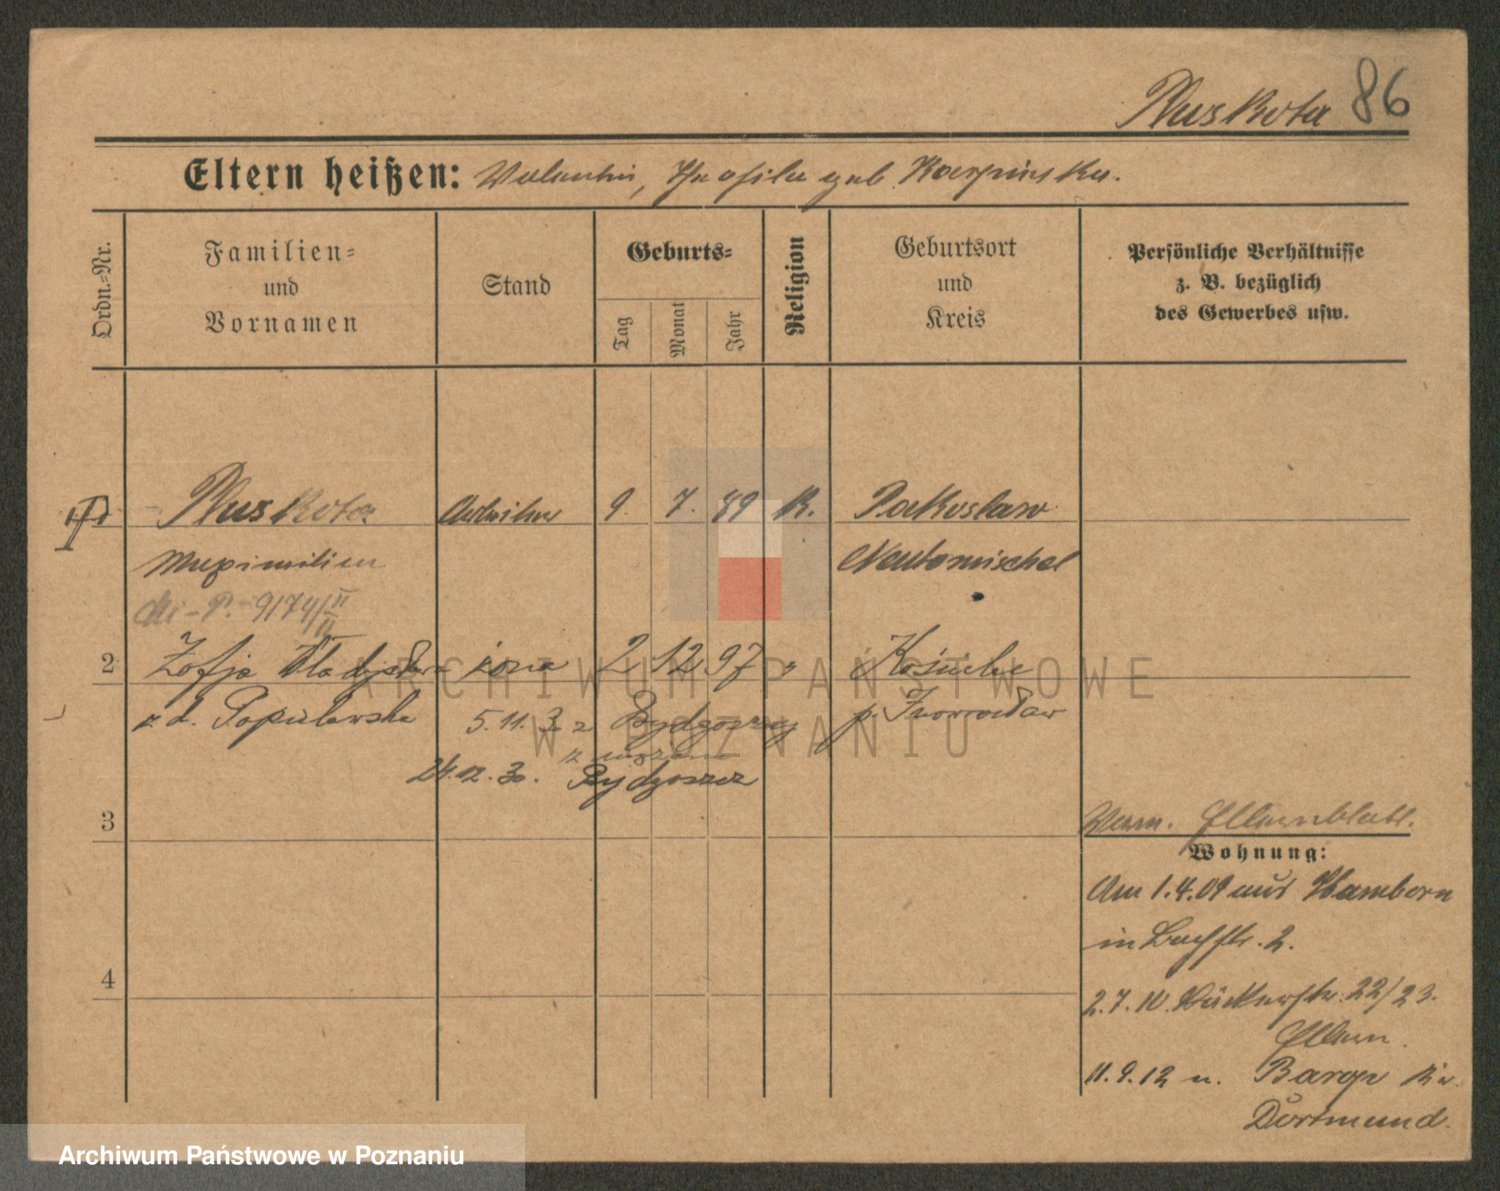 Pluskota 86
Eltern heißen: Valentin, geb. Karpinska.
Ordn.-Nr.
Familien-
und
Vornamen
Stand
Geburts-
Tag
Monat
Jahr
Religion
Geburtsort
und
Kreis
Persönliche Verhältnisse
z. B. bezüglich
des Gewerbes usw.
Pluskota Arbeiter 9. 7. 89 K. Pakoslaw
Maximilian Neutomischel
9174/II
2 Zofja Władysława żona 2 12 97 "
z d. Popielewska 5.11.3 z Bydgoszczy p. Inowrocław
24.12.30. Bydgoszcz
3
Verm. Elternblatt.
Wohnung:
Am 1.4.09 aus Hamborn
in Bachstr. 2.
4
2.7.10. 22/23.
Eltern.
11.9.12 n. Barop Kr.
Dortmund.
ARCHIWUM PAŃSTWOWE
W POZNANIU
Archiwum Państwowe w Poznaniu